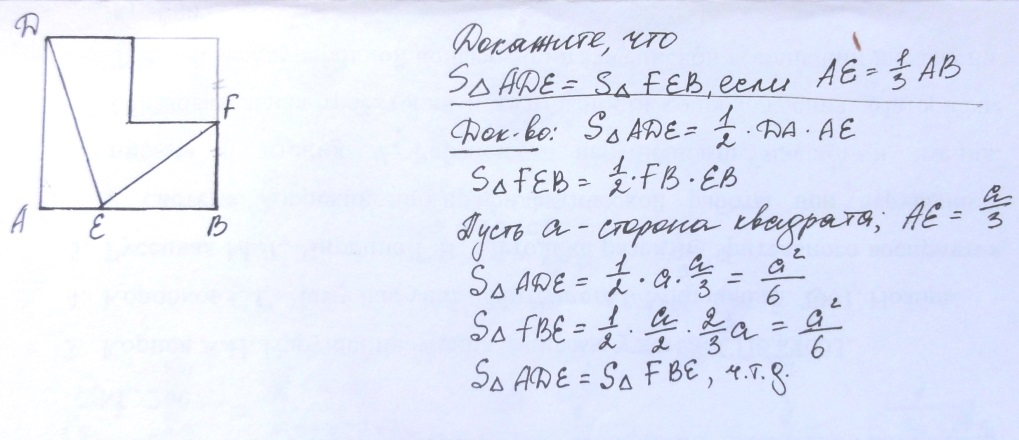 Докажите, что
S△ ADE = S△ FEB, если AE = 1/3 AB
Док-во: S△ ADE = 1/2 · DA · AE
S△ FEB = 1/2 · FB · EB
Пусть a - сторона квадрата; AE = a/3
S△ ADE = 1/2 · a · a/3 = a²/6
S△ FBE = 1/2 · a/2 · 2/3 a = a²/6
S△ ADE = S△ FBE, ч.т.д.
D
F
A E B